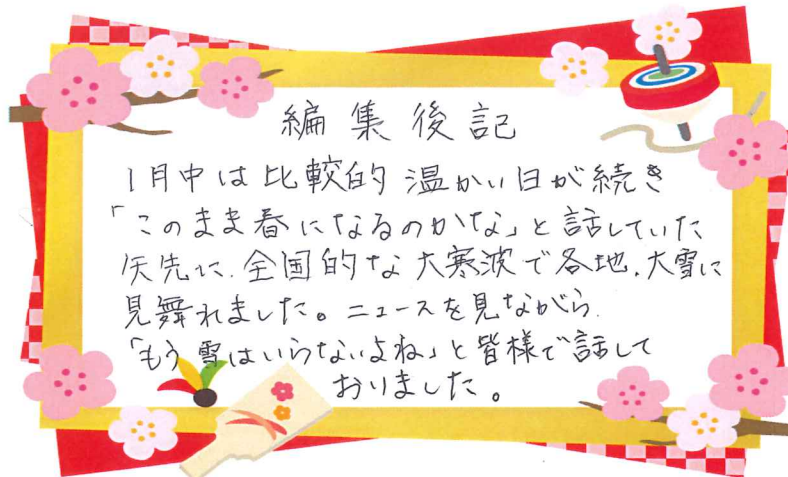 編集後記
1月中は比較的温かい日が続き
「このまま春になるのかな」と話していた
矢先に、全国的な大寒波で各地、大雪に
見舞れました。ニュースを見ながら、
「もう雪はいらないよね」と皆様で話して
おりました。